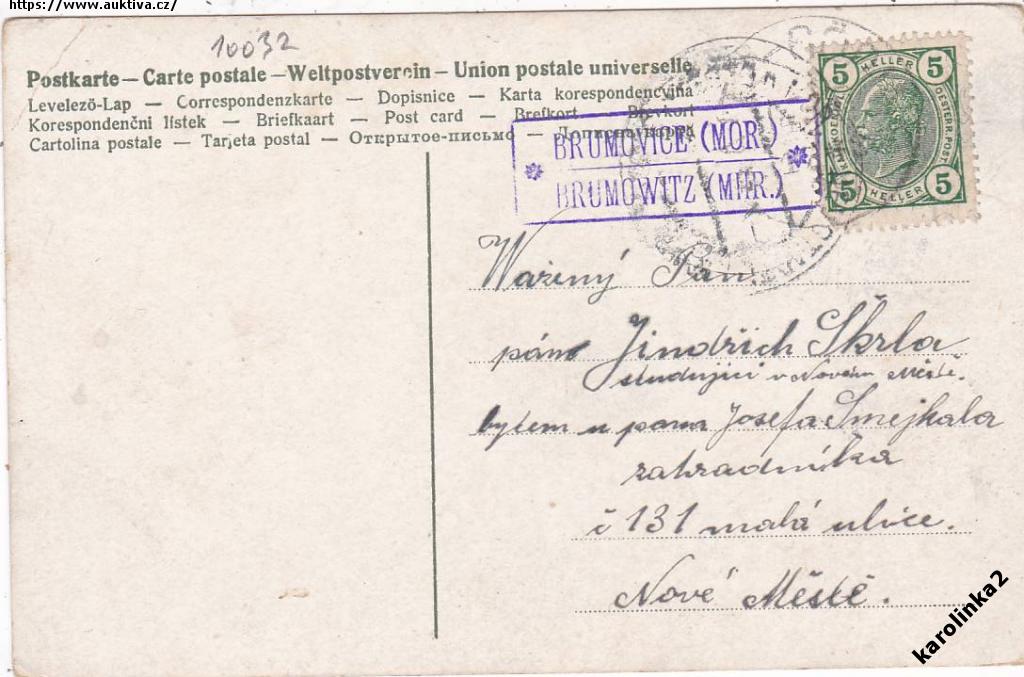 https://www.auktiva.cz/
10032
Postkarte — Carte postale — Weltpostverein — Union postale universelle
Levelező-Lap — Correspondenzkarte — Dopisnice — Karta korespondencyjna
Korespondenční lístek — Briefkaart — Post card — Brefkort — Brevkort
Cartolina postale — Tarjeta postal — Открытое-письмо — Дописна карта
BRUMOVICE (MOR.)
BRUMOWITZ (MHR.)
5 HELLER 5
OESTERR. POST
5 HELLER 5
Wažený Pan
pán Jindřich Škrla
studující v Novém Městě.
bytem u pana Josefa Smejkala
zahradníka
č 131 malá ulice.
Nové Městě.
karolinka2